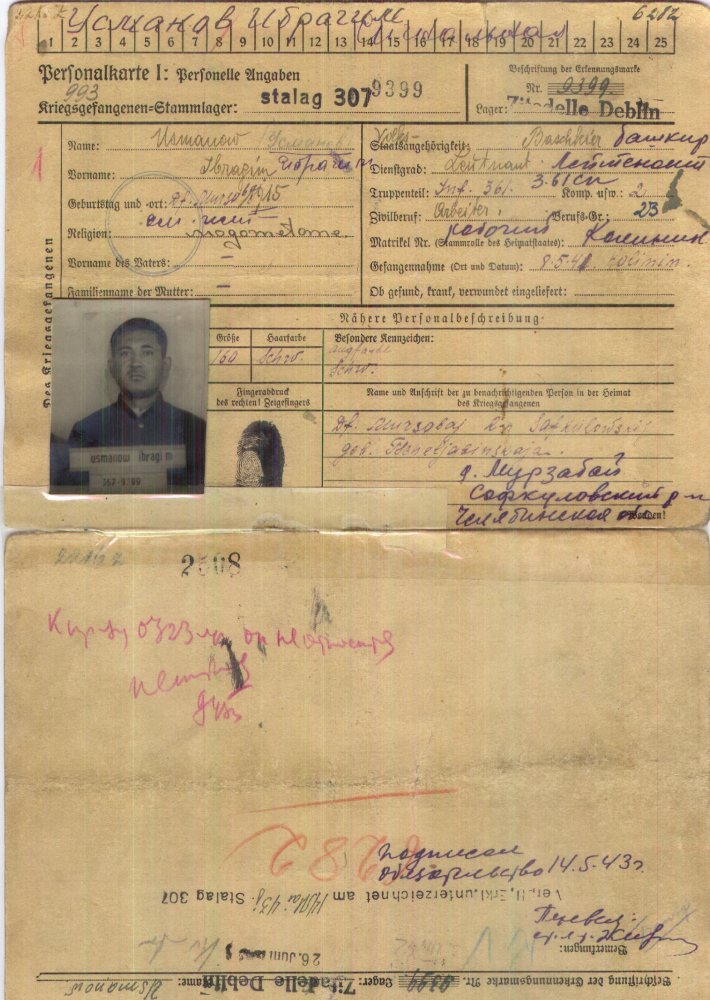 Усманов Ибрагим 6282
1 2 3 4 5 6 7 8 9 10 11 12 13 14 15 16 17 18 19 20 21 22 23 24 25
Personalkarte I: Personelle Angaben
Beschriftung der Erkennungsmarke
993
Kriegsgefangenen-Stammlager: stalag 307 9399
Nr. 9399
Lager: Zitadelle Deblin
Des Kriegsgefangenen
1
Name: Usmanow Усманов
Vorname: Ibragim Ибрагим
Geburtstag und -ort: 1915
Religion: magometane
Vorname des Vaters: –
Familienname der Mutter: –
Volks-
Staatsangehörigkeit: Baschkier башкир
Dienstgrad: Leutnant Лейтенант
Truppenteil: Inf. 361. 361 сп Komp. usw.: 2
Zivilberuf: Arbeiter, Berufs-Gr.: 23
рабочий
Matrikel Nr. (Stammrolle des Heimatstaates): Калинин
Gefangennahme (Ort und Datum): Kalinin.
Ob gesund, krank, verwundet eingeliefert:
Nähere Personalbeschreibung
Größe Haarfarbe Besondere Kennzeichen:
160 Schw.
Schw.
Fingerabdruck
des rechten! Zeigefingers
Name und Anschrift der zu benachrichtigenden Person in der Heimat
des Kriegsgefangenen
usmanow ibragim
307-9399
Df. Mursabaj
д. Мурзабай
Сафкуловский р-н
Челябинская об.
wenden!
2508
Карту
6282
подписал
обязательство 14.5.43г.
Verpfl. Erkl. unterzeichnet am 14 Mai 43 Stalag 307
Перевел:
Bemerkungen:
26. Juni
Beschriftung der Erkennungsmarke Nr. 9399 Lager: Zitadelle Deblin Name: Usmanow